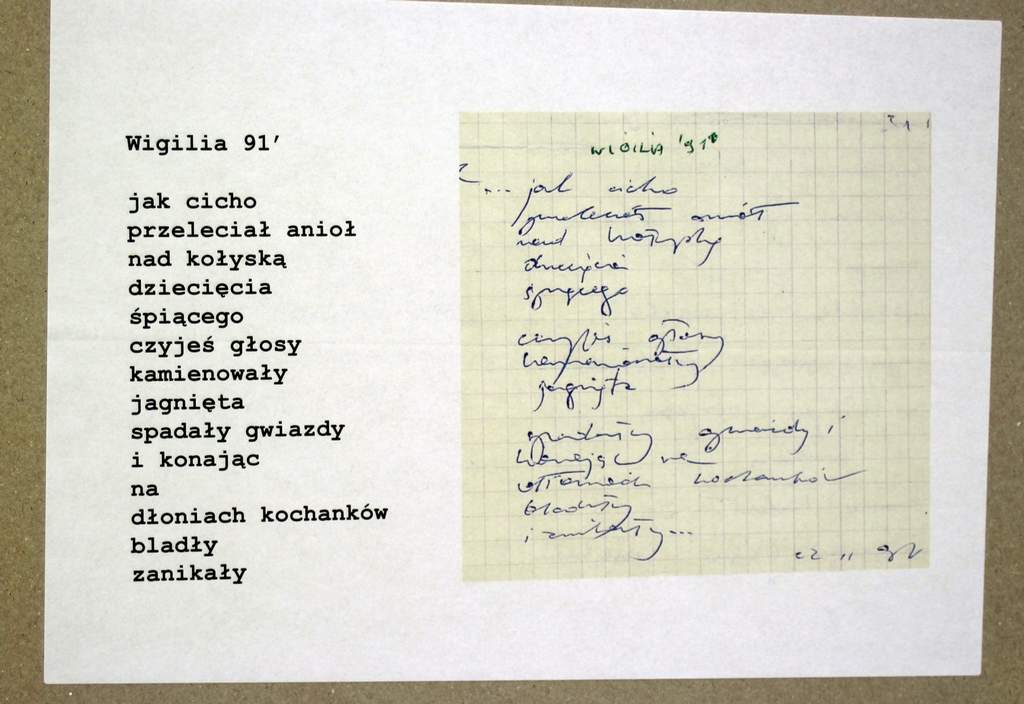 Wigilia 91’
jak cicho
przeleciał anioł
nad kołyską
dziecięcia
śpiącego
czyjeś głosy
kamienowały
jagnięta
spadały gwiazdy
i konając
na
dłoniach kochanków
bladły
zanikały
WIGILIA '91'
... jak cicho
przeleciał anioł
nad kołyską
dziecięcia
śpiącego
czyjeś głosy
kamienowały
jagnięta
spadały gwiazdy i
konając na
dłoniach kochanków
bladły
i zanikały...